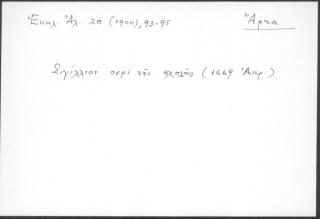 Ἐκκλ. Ἀλ. 20 (1900), 93-95
Ἄρτα
Σιγίλλιον περὶ τῆς σχολῆς (1669 Ἀπρ.)